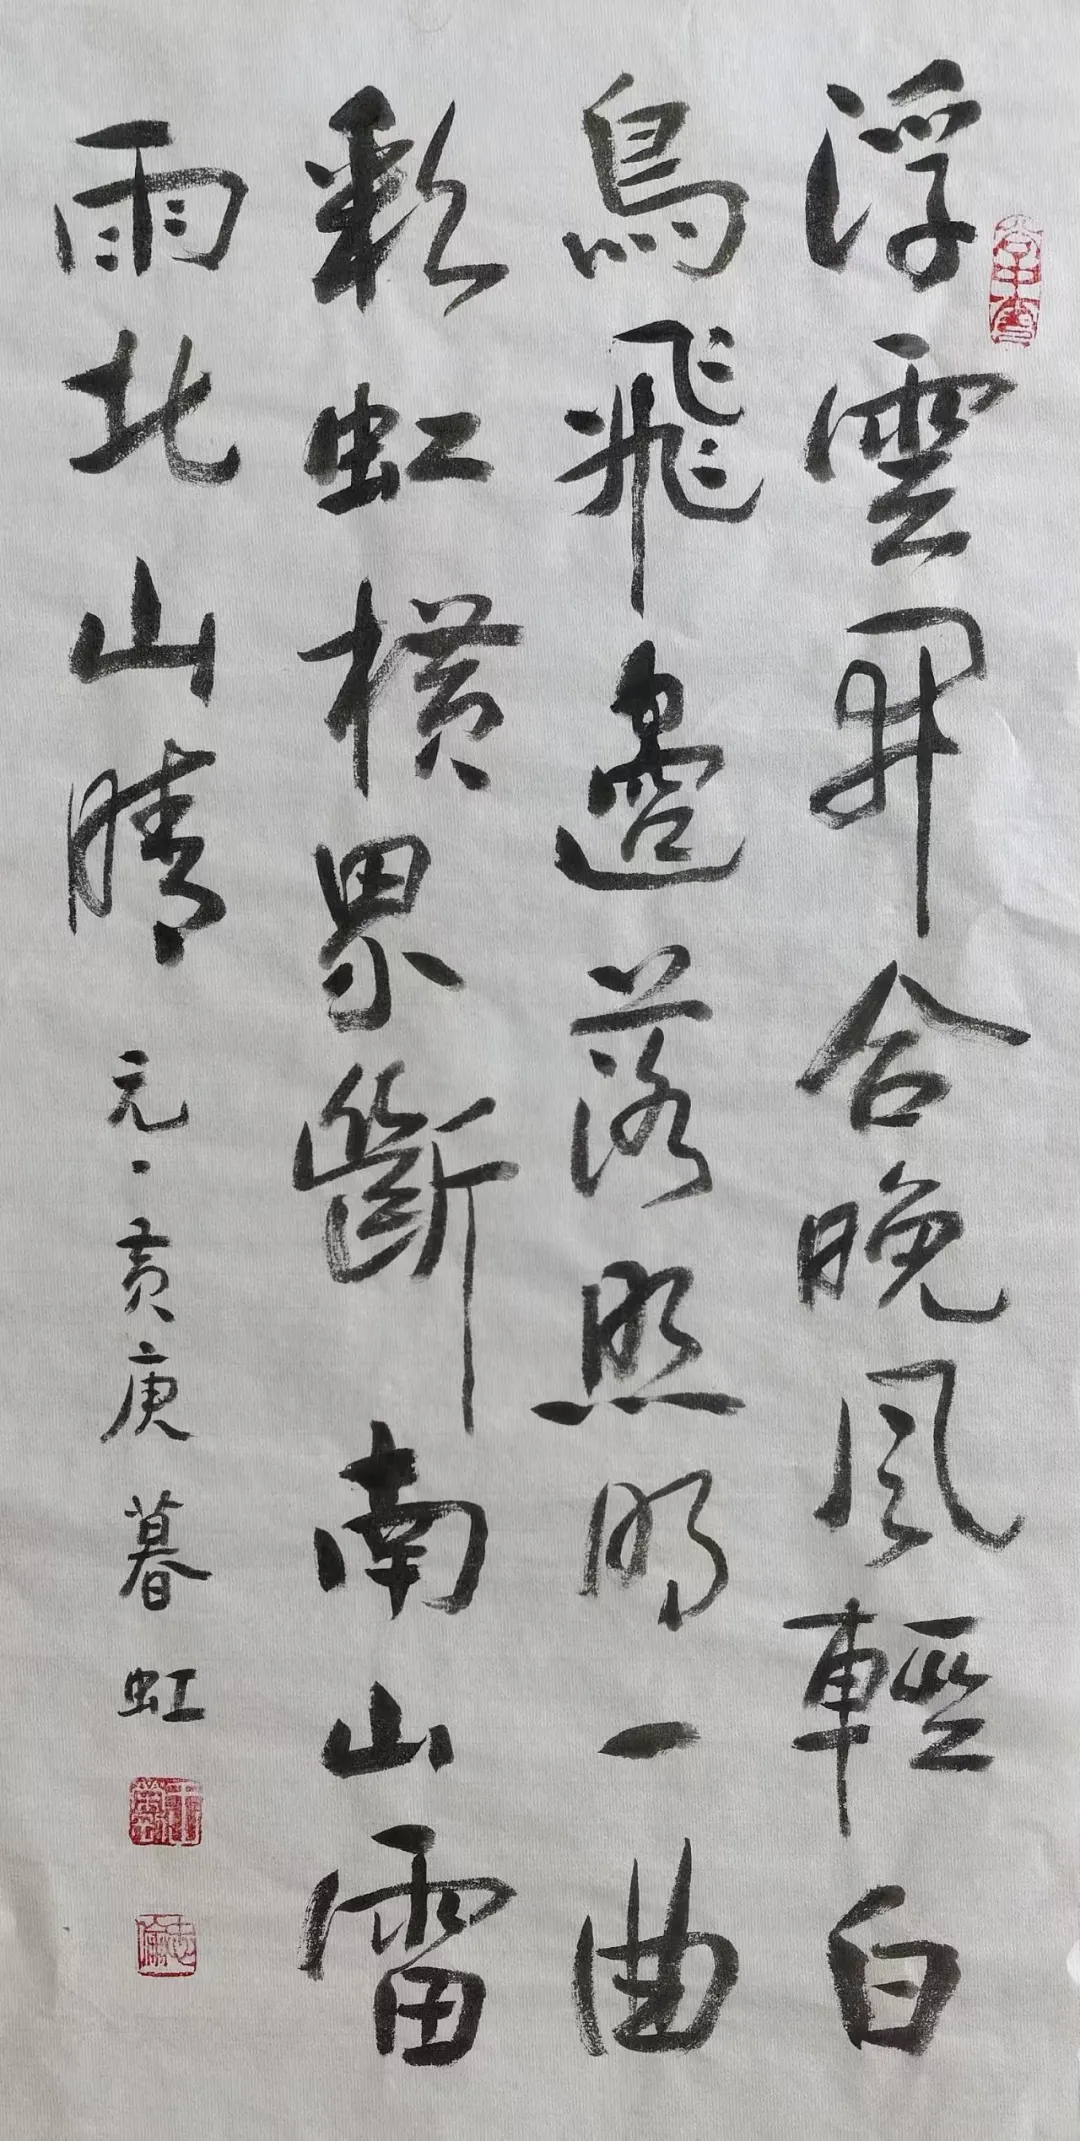 浮雲開合晚風輕白
鳥飛邊落照明一曲
彩虹橫界斷南山雷
雨北山晴
元·黄庚暮虹